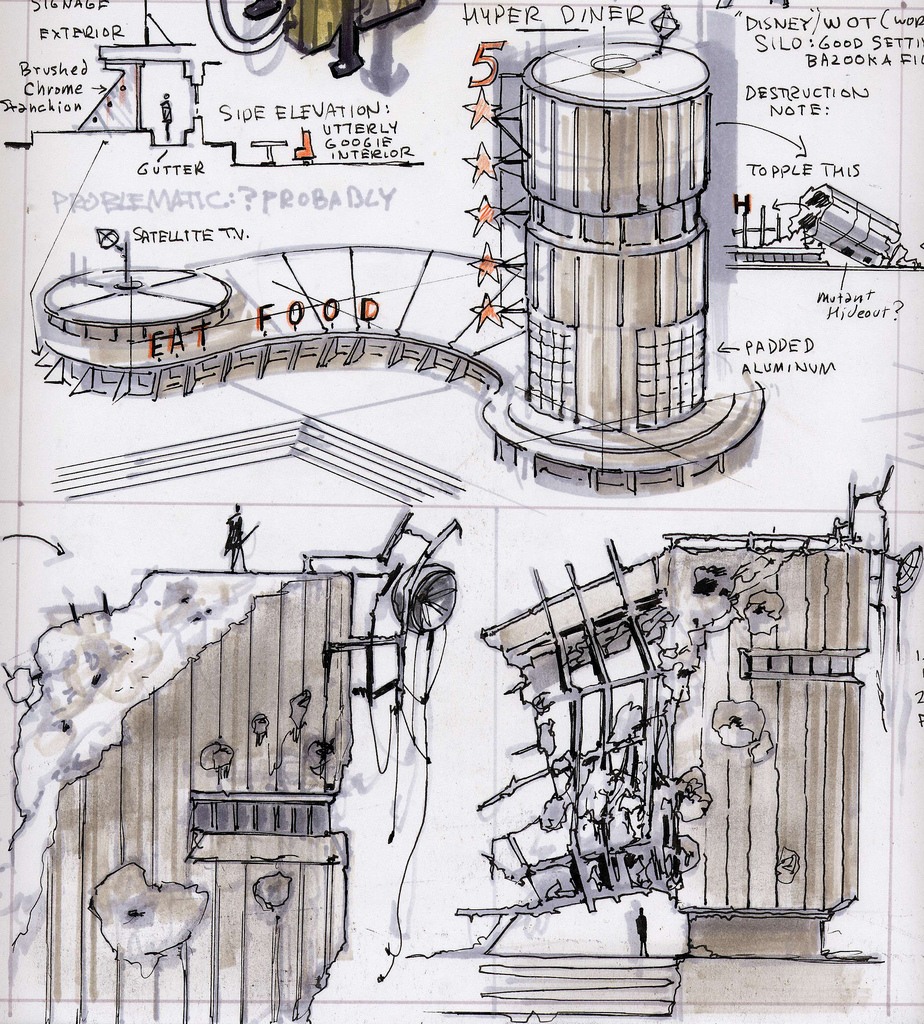 SIGNAGE
EXTERIOR
Brushed
Chrome
Stanchion
GUTTER
SIDE ELEVATION:
UTTERLY
GOOGIE
INTERIOR
PROBLEMATIC:? PROBABLY
SATELLITE T.V.
EAT FOOD
HYPER DINER
5
"DISNEY"/WOT
SILO: GOOD
BAZOOKA
DESTRUCTION
NOTE:
TOPPLE THIS
H
Mutant
Hideout?
← PADDED
ALUMINUM
1.
2